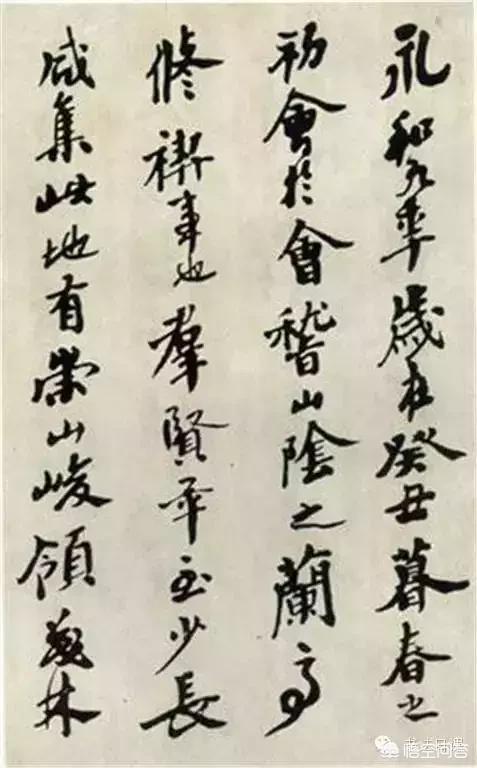 永和九年歲在癸丑暮春之
初會於會稽山陰之蘭亭
修禊事也羣賢畢至少長
咸集此地有崇山峻領茂林
悟空问答